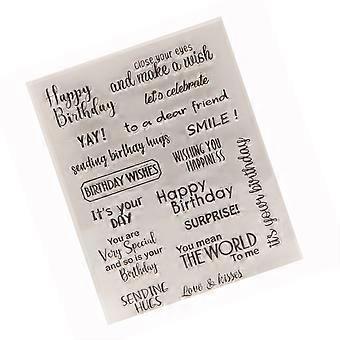 close your eyes
and make a wish
Happy
Birthday
let's celebrate
YAY!
to a dear friend
SMILE !
sending birthay hugs
WISHING YOU
HAPPINESS
BIRTHDAY WISHES
It's your
DAY
Happy
Birthday
It's your birthday
SURPRISE!
You are
Very Special
and so is your
Birthday
You mean
THE WORLD
To me
SENDING
HUGS
Love & kisses